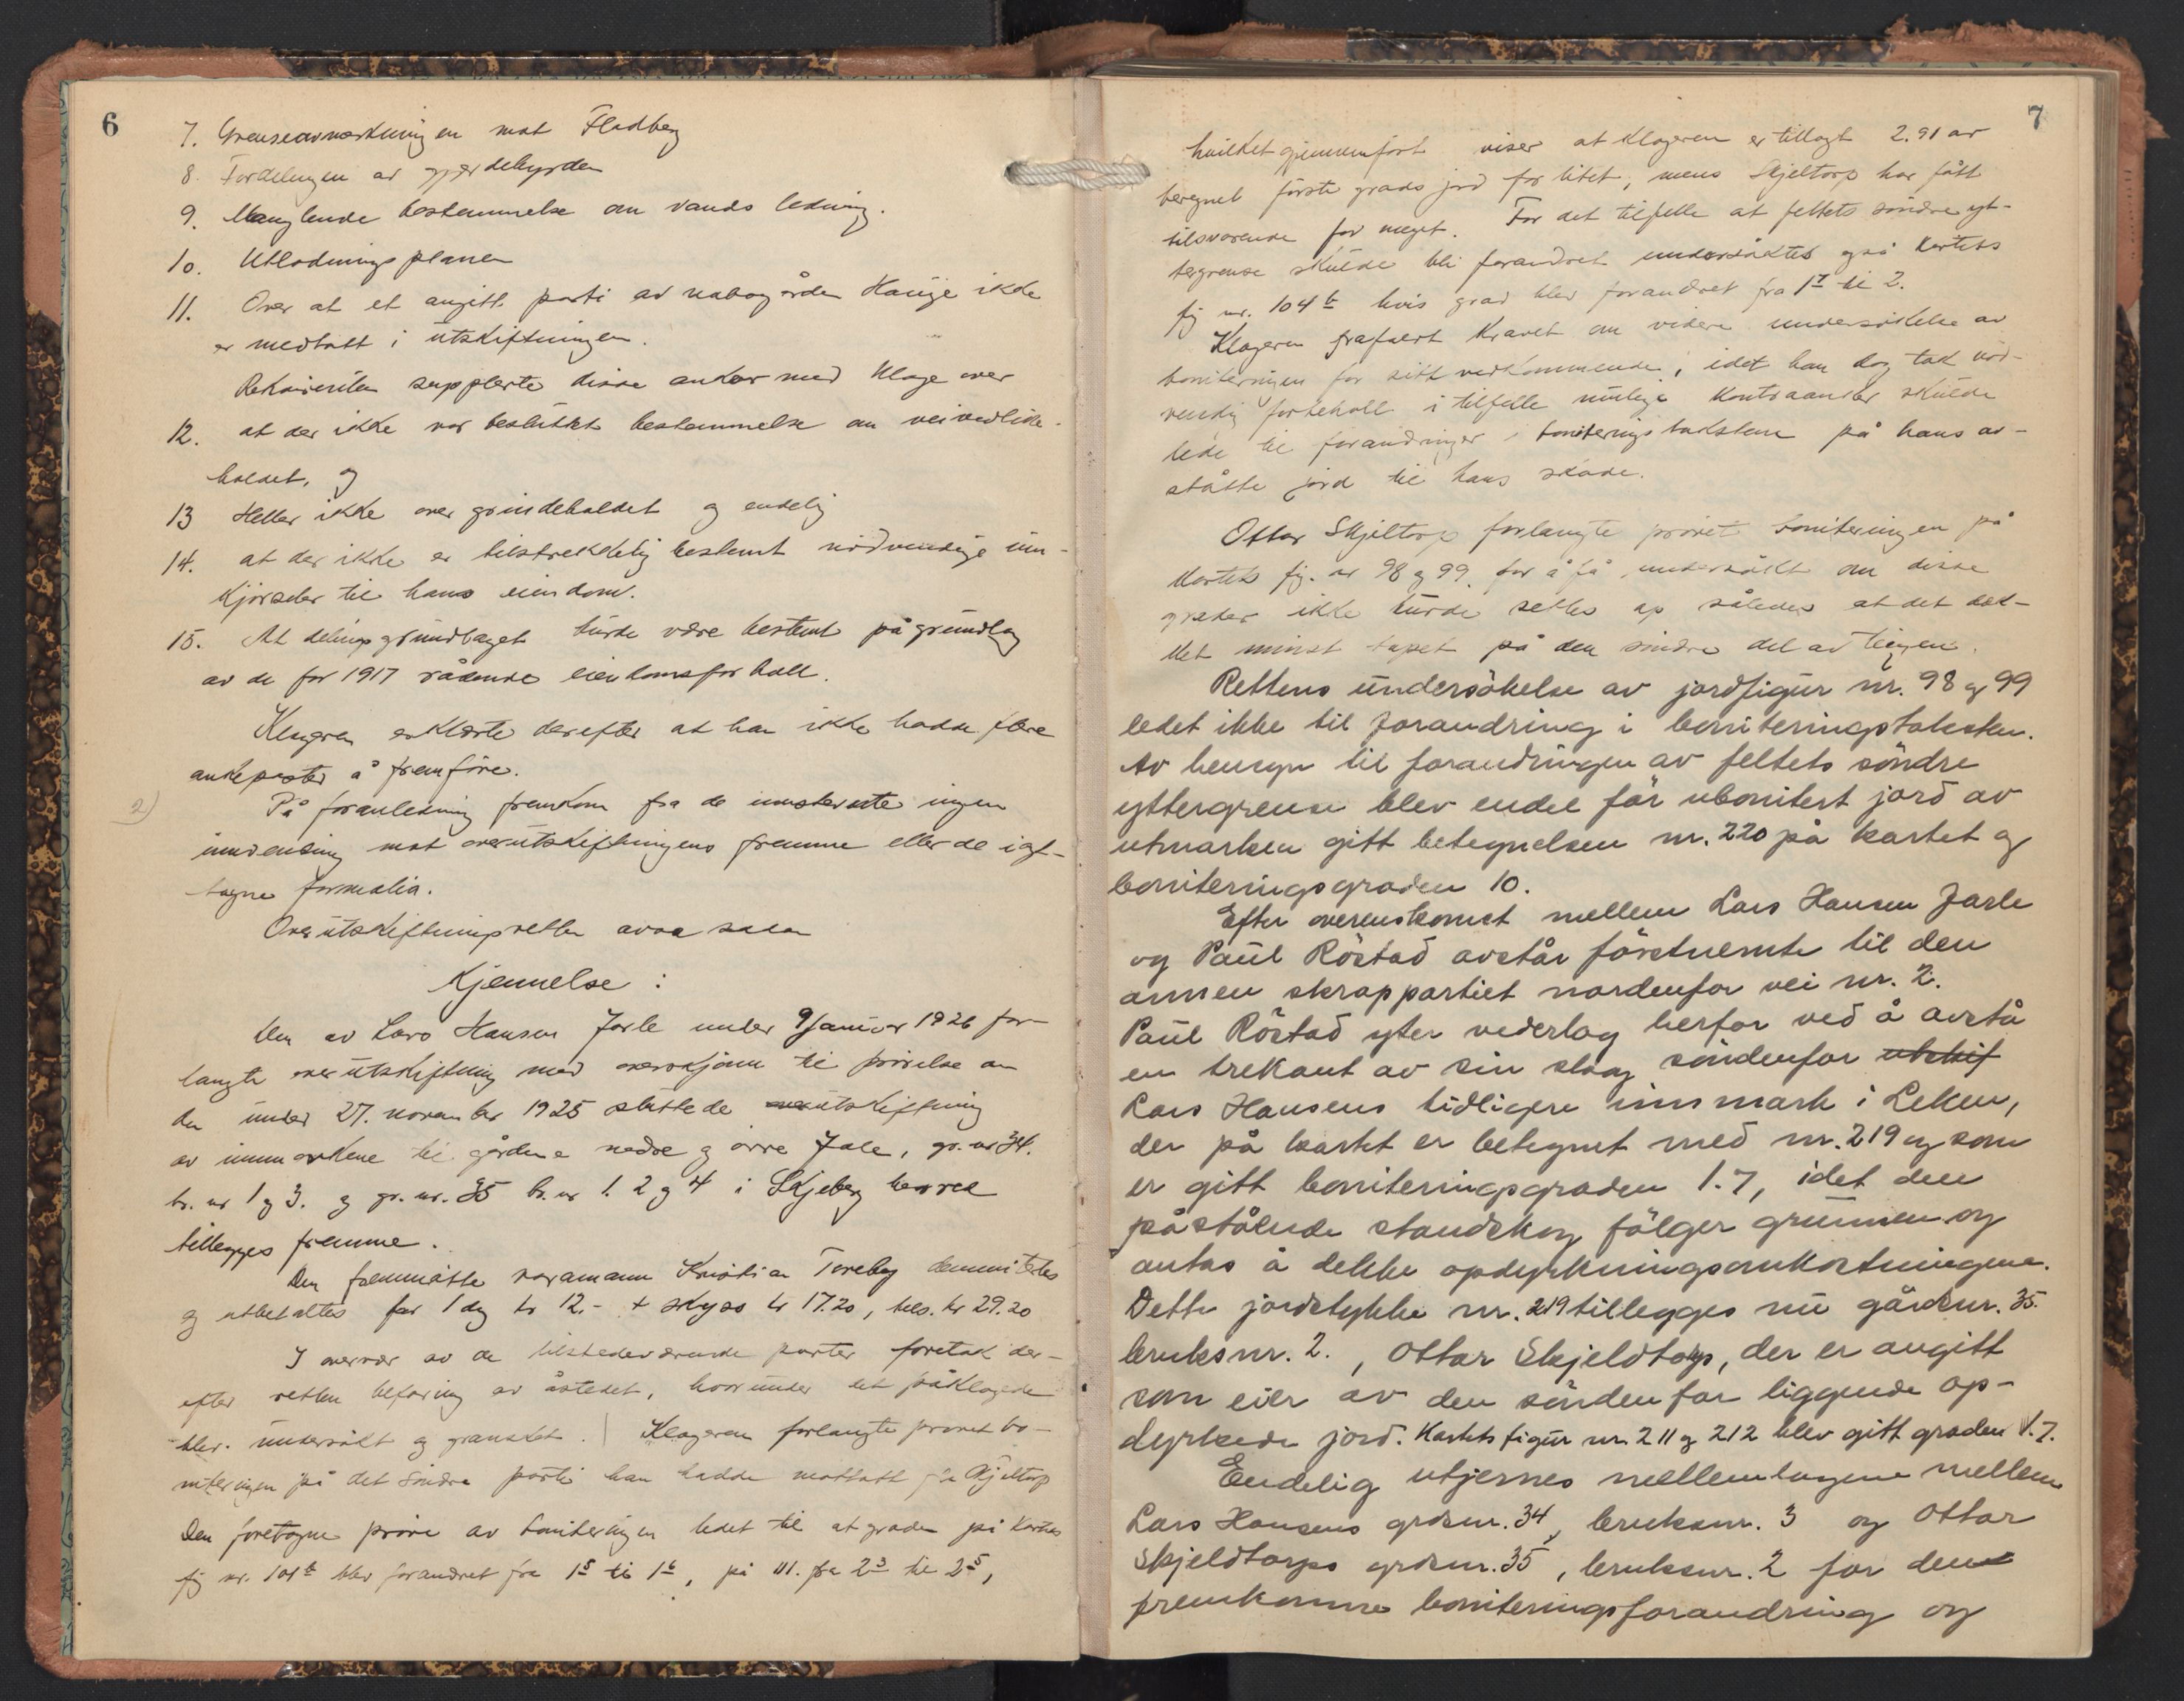 6
7. Grenseavmerkningen mot Fladberg
8. Fordelingen av gjerdebyrden
9. Manglende bestemmelse om vandsledning.
10. Utlodningsplanen
11. Over at et angitt parti av nabogården Hauge ikke
er medtatt i utskiftningen.
Rekvirenten supplerte disse anker med klage over
12. at der ikke var besluttet bestemmelse om veivedlike-
holdet, og
13 Heller ikke over grindeholdet og endelig
14. at der ikke er tilstrekkelig bestemt nödvendige inn-
kjörseler til hans eiendom.
15. At delingsgrundlaget burde være bestemt på grundlag
av de før 1917 rådende eiendomsforhold.
Klageren erklærte derefter at han ikke hadde flere
ankeposter å fremföre.
2)
På foranledning fremkom fra de innstevnte ingen
innvending mot overutskiftningens fremme eller de iagt-
tagne formalia.
Overutskiftningsretten avsa saadan
Kjennelse:
Den av Lars Hansen Jarle under 9 januar 1926 for-
langte overutskiftning med overskjönn til prövelse av
den under 27. november 1925 sluttede utskiftning
av innmarkene til gårdene nedre og övre Jale, gr. nr 34.
br. nr 1 og 3. og gr. nr. 35 br. nr 1. 2 og 4 i Skjeberg herred
tillegges fremme.
Den fremmötte varamann Kristian Toreby demmitertes
og utbetaltes for 1 dag kr 12.- + skyss kr 17.20, tils. kr 29.20
I overvær av de tilstedeværende parter foretok der-
efter retten befaring av åstedet, hvorunder det påklagede
blev undersökt og gransket. | Klageren forlangte prövet bo-
niteringen på det söndre parti han hadde mottatt fra Skjeltorp
Den foretagne pröve av boniteringen ledet til at graden på kartets
fig nr. 101b blev forandret fra 1⁵ til 1⁶, på 111. fra 2³ til 2⁵,
7
hvilket gjennemfört viser at klageren er tillagt 2.91 ar
beregnet förste grads jord for litet, mens Skjeltorp har fått
tilsvarende for meget. For det tilfelle at feltets söndre yt-
tergrense skulde bli forandret undersöktes også kartets
fig nr. 104b hvis grad blev forandret fra 1⁷ til 2.
Klageren frafalt kravet om videre undersökelse av
boniteringen for sitt vedkommende, idet han dog tok nöd-
vendig forbehold i tilfelle mulige kontraanker skulde
lede til forandringer i boniteringstaksten på hans av-
ståtte jord til hans skade.
Ottar Skjeltorp forlangte prövet boniteringen på
kartets fig. nr 98 og 99 for å få undersökt om disse
grader ikke burde settes op således at det dek-
ket minst tapet på den söndre del av teigen.
Rettens undersökelse av jordfigur nr. 98 og 99
ledet ikke til forandring i boniteringstaksten.
Av hensyn til forandringen av feltets söndre
yttergrense blev endel för ubonitert jord av
utmarken gitt betegnelsen nr. 220 på kartet og
boniteringsgraden 10.
Efter overenskomst mellem Lars Hansen Jarle
og Paul Röstad avstår förstnemte til den
annen skrappartiet nordenfor vei nr. 2.
Paul Röstad yter vederlag herfor ved å avstå
en trekant av sin skog söndenfor utskif
Lars Hansens tidligere innmark i Leken,
der på kartet er betegnet med nr. 219 og som
er gitt boniteringsgraden 1.7, idet den
påstående standskog fölger grunnen og
antas å dekke opdyrkningsomkostningene.
Dette jordstykke nr. 219 tillegges nu gårdsnr. 35.
bruksnr. 2., Ottar Skjeldtorp, der er angitt
som eier av den söndenfor liggende op-
dyrkede jord. Kartets figur nr. 211 og 212 blev gitt graden 1.7.
Endelig utjernes mellemlagene mellem
Lars Hansens grdsnr. 34, bruksnr. 3 og Ottar
Skjeldtorps grdsnr. 35, bruksnr. 2 for den
fremkomne boniteringsforandring og